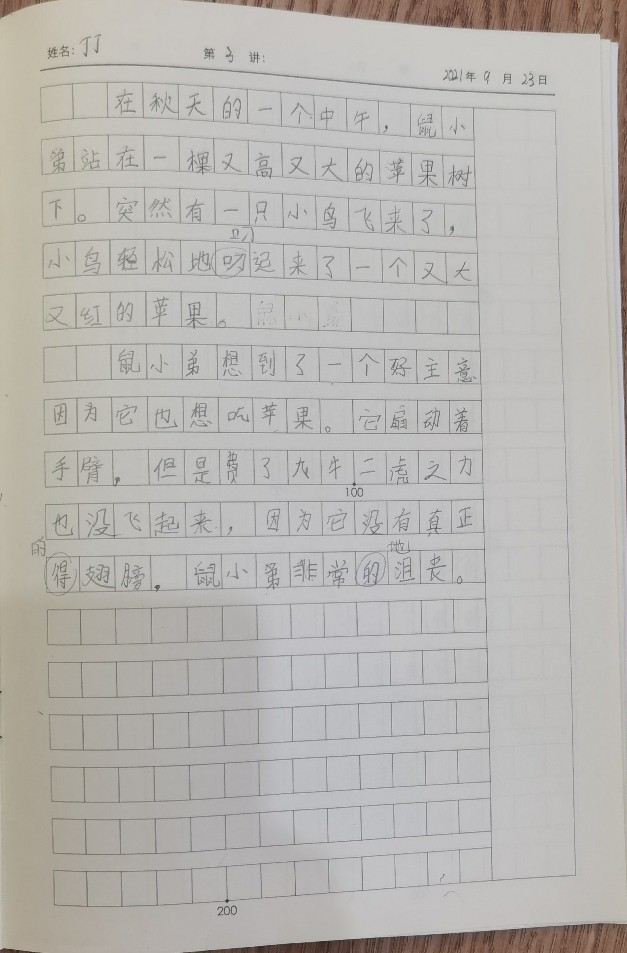 姓名：丁丁 第3讲： 2021年9月23日
在秋天的一个中午，鼠小
弟站在一棵又高又大的苹果树
下。突然有一只小鸟飞来了，
叼
小鸟轻松地叨起来了一个又大
又红的苹果。鼠小弟
鼠小弟想到了一个好主意
因为它也想吃苹果。它扇动着
手臂，但是费了九牛二虎之力
100
也没飞起来，因为它没有真正
的 地
得翅膀，鼠小弟非常的沮丧。
200